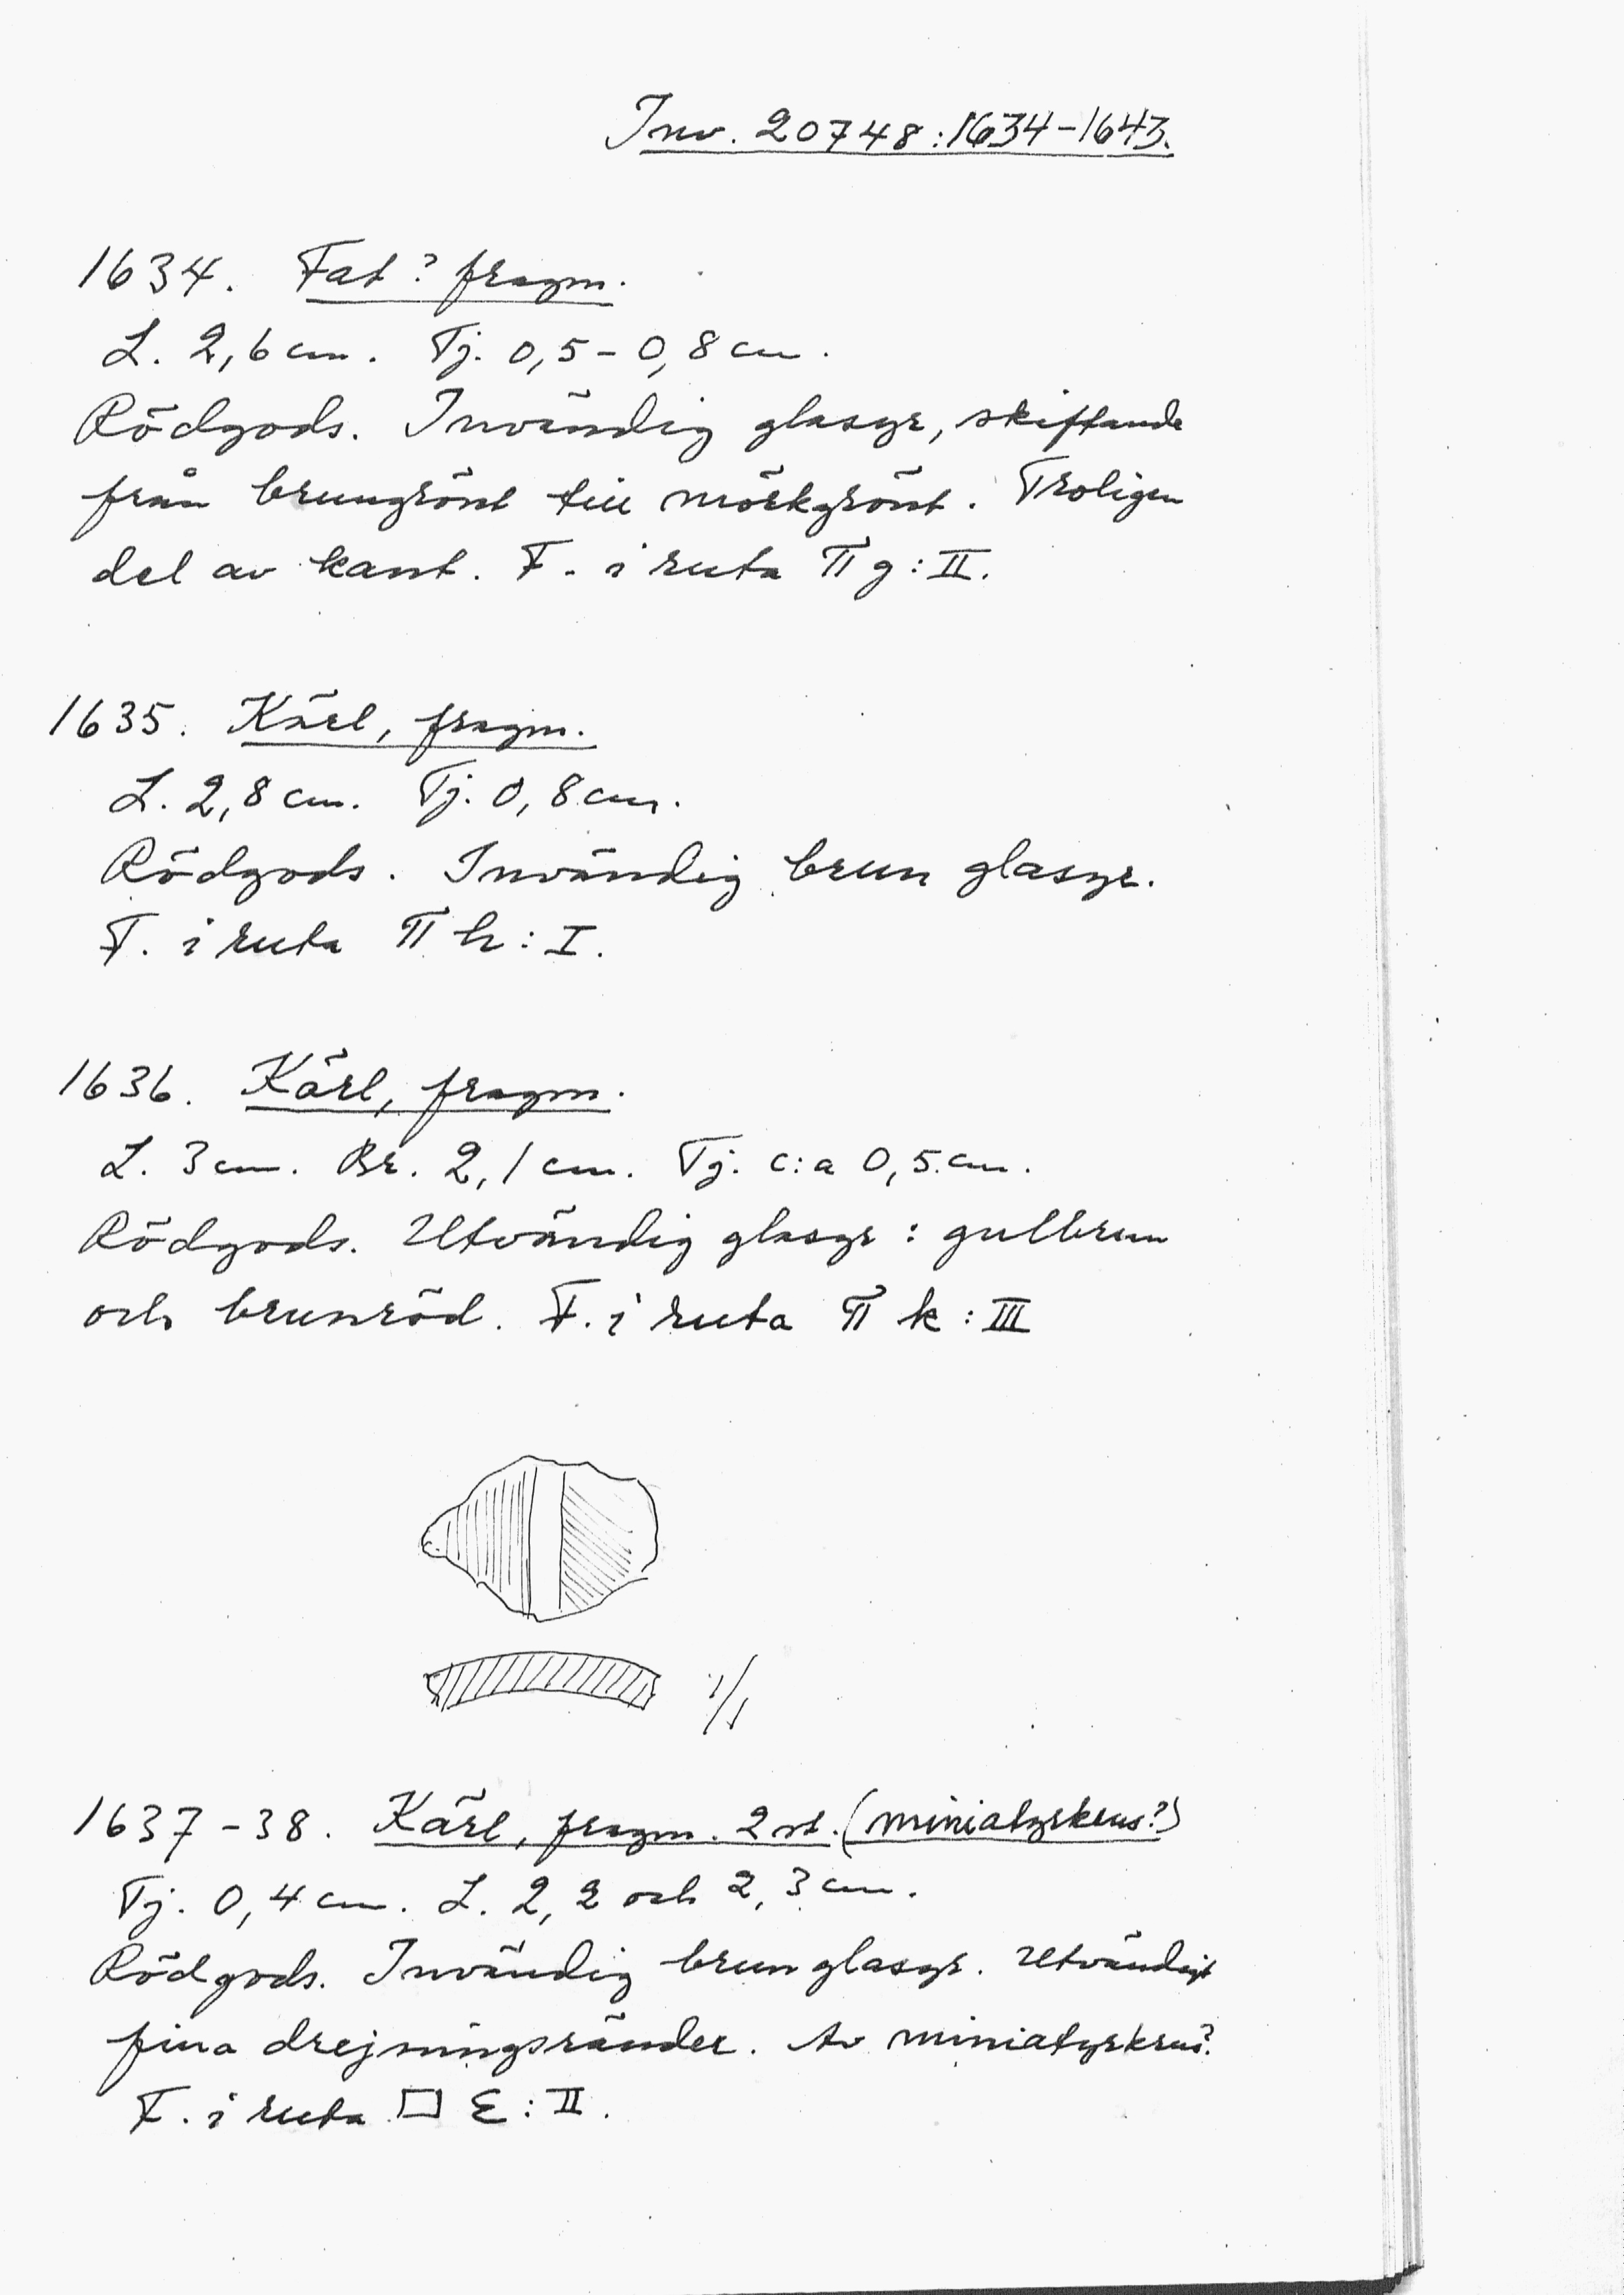 Inv. 20748:1634-1643.
1634. Fat? fragm.
L. 2,6 cm. Tj. 0,5 - 0,8 cm.
Rödgods. Invändig glasyr, skiftande
från brungrönt till mörkgrönt. Troligen
del av kant. F. i ruta π g : II.
1635. Kärl, fragm.
L. 2,8 cm. Tj. 0,8 cm.
Rödgods. Invändig brun glasyr.
F. i ruta π h : I.
1636. Kärl, fragm.
L. 3 cm. Br. 2,1 cm. Tj. c:a 0,5 cm.
Rödgods. Utvändig glasyr : gulbrun
och brunröd. F. i ruta π k : III
1/1
1637-38. Kärl, fragm. 2 st. (miniatyrkrus?)
Tj. 0,4 cm. L. 2,2 och 2,3 cm.
Rödgods. Invändig brun glasyr. Utvändigt
fina drejningsränder. Av miniatyrkrus?
F. i ruta □ ε : II.